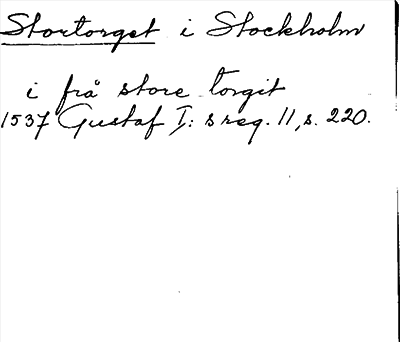 Stortorget i Stockholm
i frå store torgit
1537 Gustaf I: s reg. 11, s. 220.